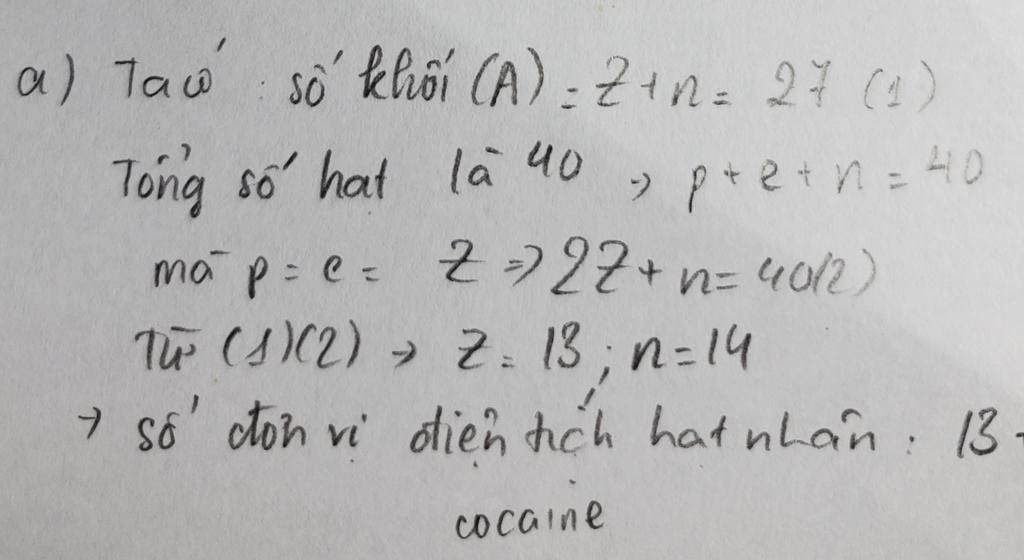 a) Ta có : số khối (A) = Z + n = 27 (1)
Tổng số hat là 40 → p + e + n = 40
mà p = e = Z => 2Z + n = 40(2)
Từ (1)(2) → Z = 13 ; n = 14
→ số đơn vị điện tích hat nhân : 13+
cocaine